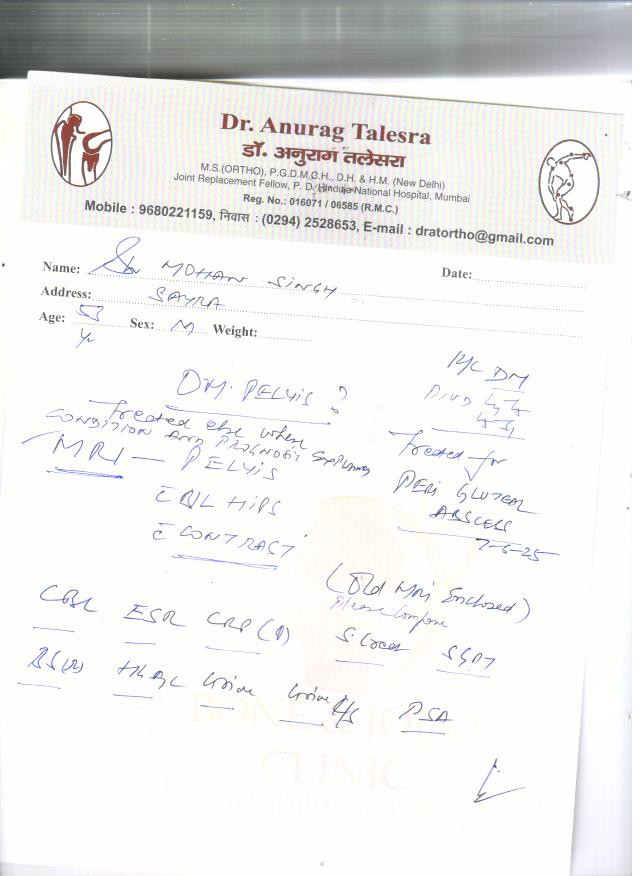 Dr. Anurag Talesra
डॉ. अनुराग तलेसरा
M.S.(ORTHO), P.G.D.M.C.H., D.H. & H.M. (New Delhi)
Joint Replacement Fellow, P. D. Hinduja National Hospital, Mumbai
Reg. No.: 016071 / 06585 (R.M.C.)
Mobile : 9680221159, निवास : (0294) 2528653, E-mail : dratortho@gmail.com
Name: MOHAN SINGH Date:
Address: SAYRA
Age: 53 Yr Sex: M Weight:
DM
OM. PELVIS ?
Treated else where
CONDITION AND PROGNOSIS EXPLAINED
Treated for
PERI GLUTEAL
ABSCESS
7-6-25
MRI — PELVIS
c̄ B/L HIPS
c̄ CONTRAST
(Old MRI Enclosed)
Please Compare
CBC ESR CRP (Q) S. Creat SGPT
BS(R) HbA1c Urine Urine C/S PSA
BONE & JOINT
CLINIC